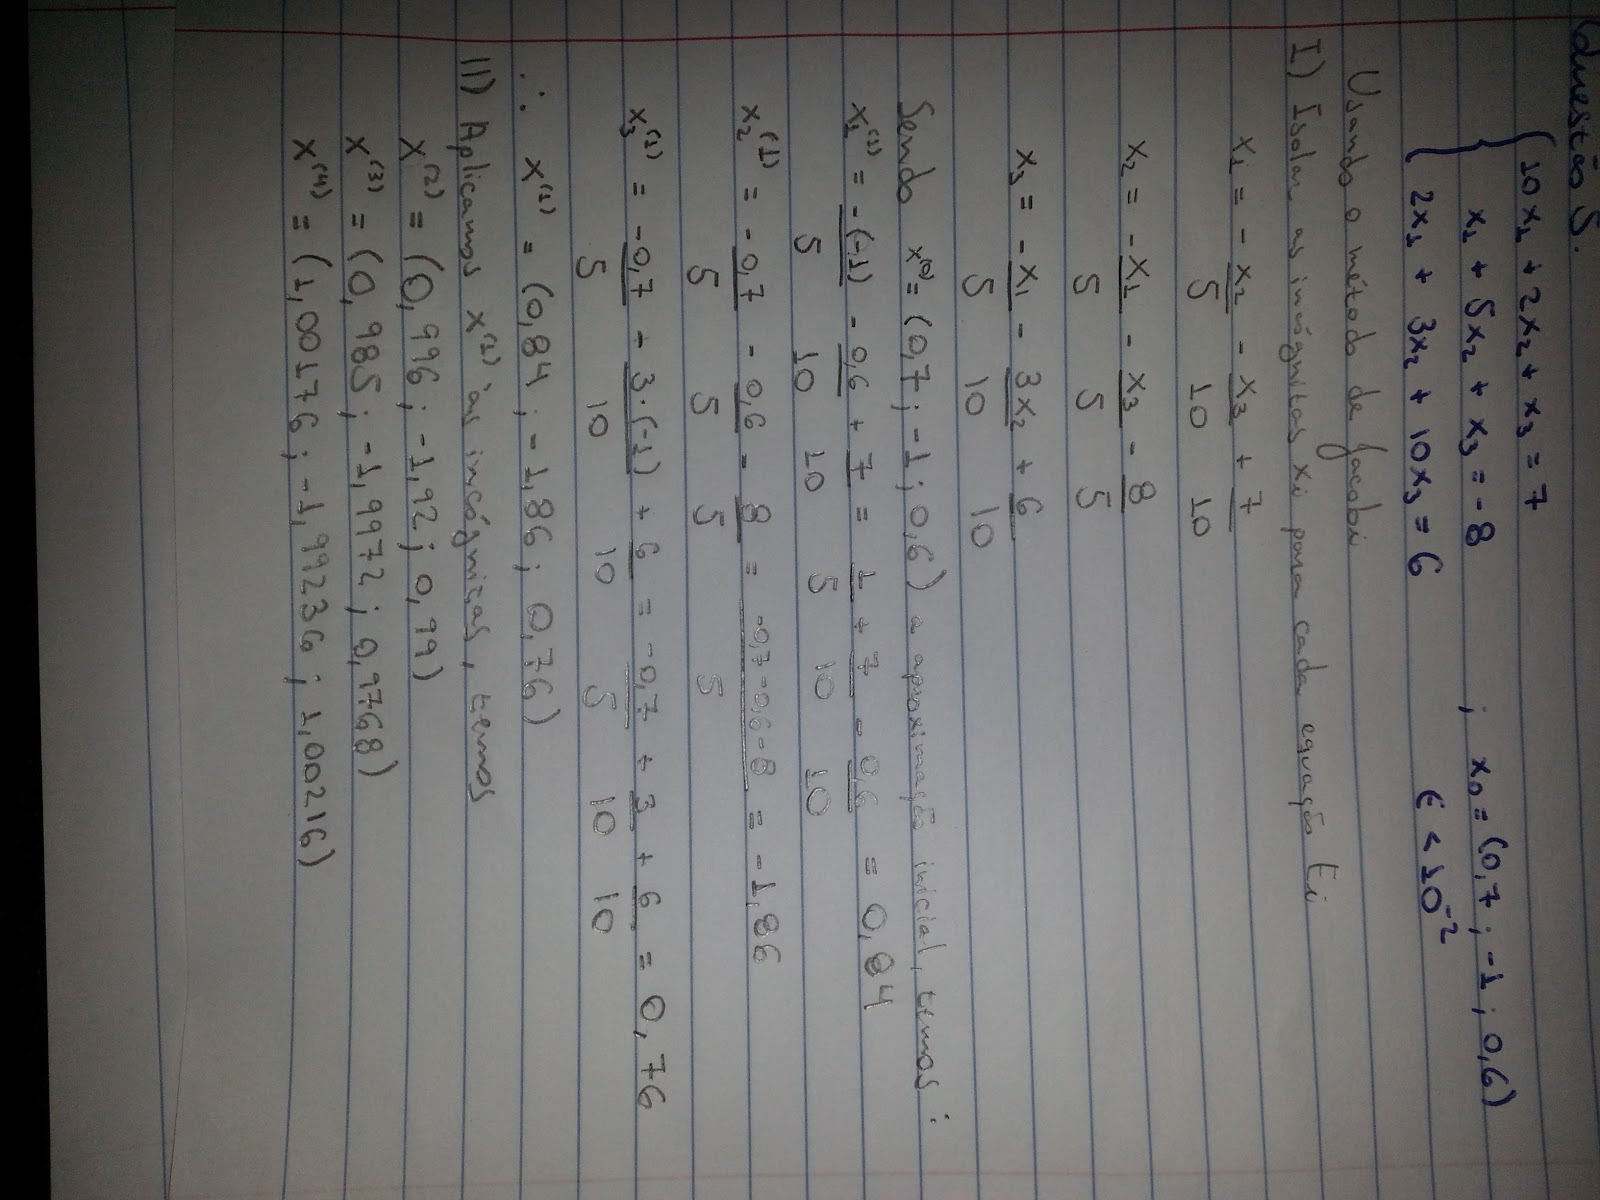 Questão 5.
10x₁ + 2x₂ + x₃ = 7
x₁ + 5x₂ + x₃ = -8 ; x₀ = (0,7 ; -1 ; 0,6)
2x₁ + 3x₂ + 10x₃ = 6 ε < 10⁻²
Usando o método de Jacobi
I) Isolar as incógnitas xi para cada equação Ei
x₁ = -x₂/5 - x₃/10 + 7/10
x₂ = -x₁/5 - x₃/5 - 8/5
x₃ = -x₁/5 - 3x₂/10 + 6/10
Sendo x⁽⁰⁾ = (0,7 ; -1 ; 0,6) a aproximação inicial, temos:
x₁⁽¹⁾ = -(-1)/5 - 0,6/10 + 7/10 = 1/5 + 7/10 - 0,6/10 = 0,84
x₂⁽¹⁾ = -0,7/5 - 0,6/5 - 8/5 = -0,7-0,6-8/5 = -1,86
x₃⁽¹⁾ = -0,7/5 - 3·(-1)/10 + 6/10 = -0,7/5 + 3/10 + 6/10 = 0,76
∴ x⁽¹⁾ = (0,84 ; -1,86 ; 0,76)
II) Aplicamos x⁽¹⁾ às incógnitas, temos
x⁽²⁾ = (0,996 ; -1,92 ; 0,99)
x⁽³⁾ = (0,985 ; -1,9972 ; 0,9768)
x⁽⁴⁾ = (1,00176 ; -1,99236 ; 1,00216)